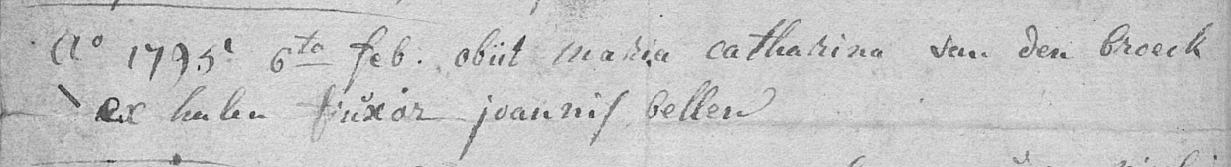 Aº 1795ᵗ 6ᵗᵒ feb. obiit maria catharina van den broeck
ex halen uxor joannis bellen